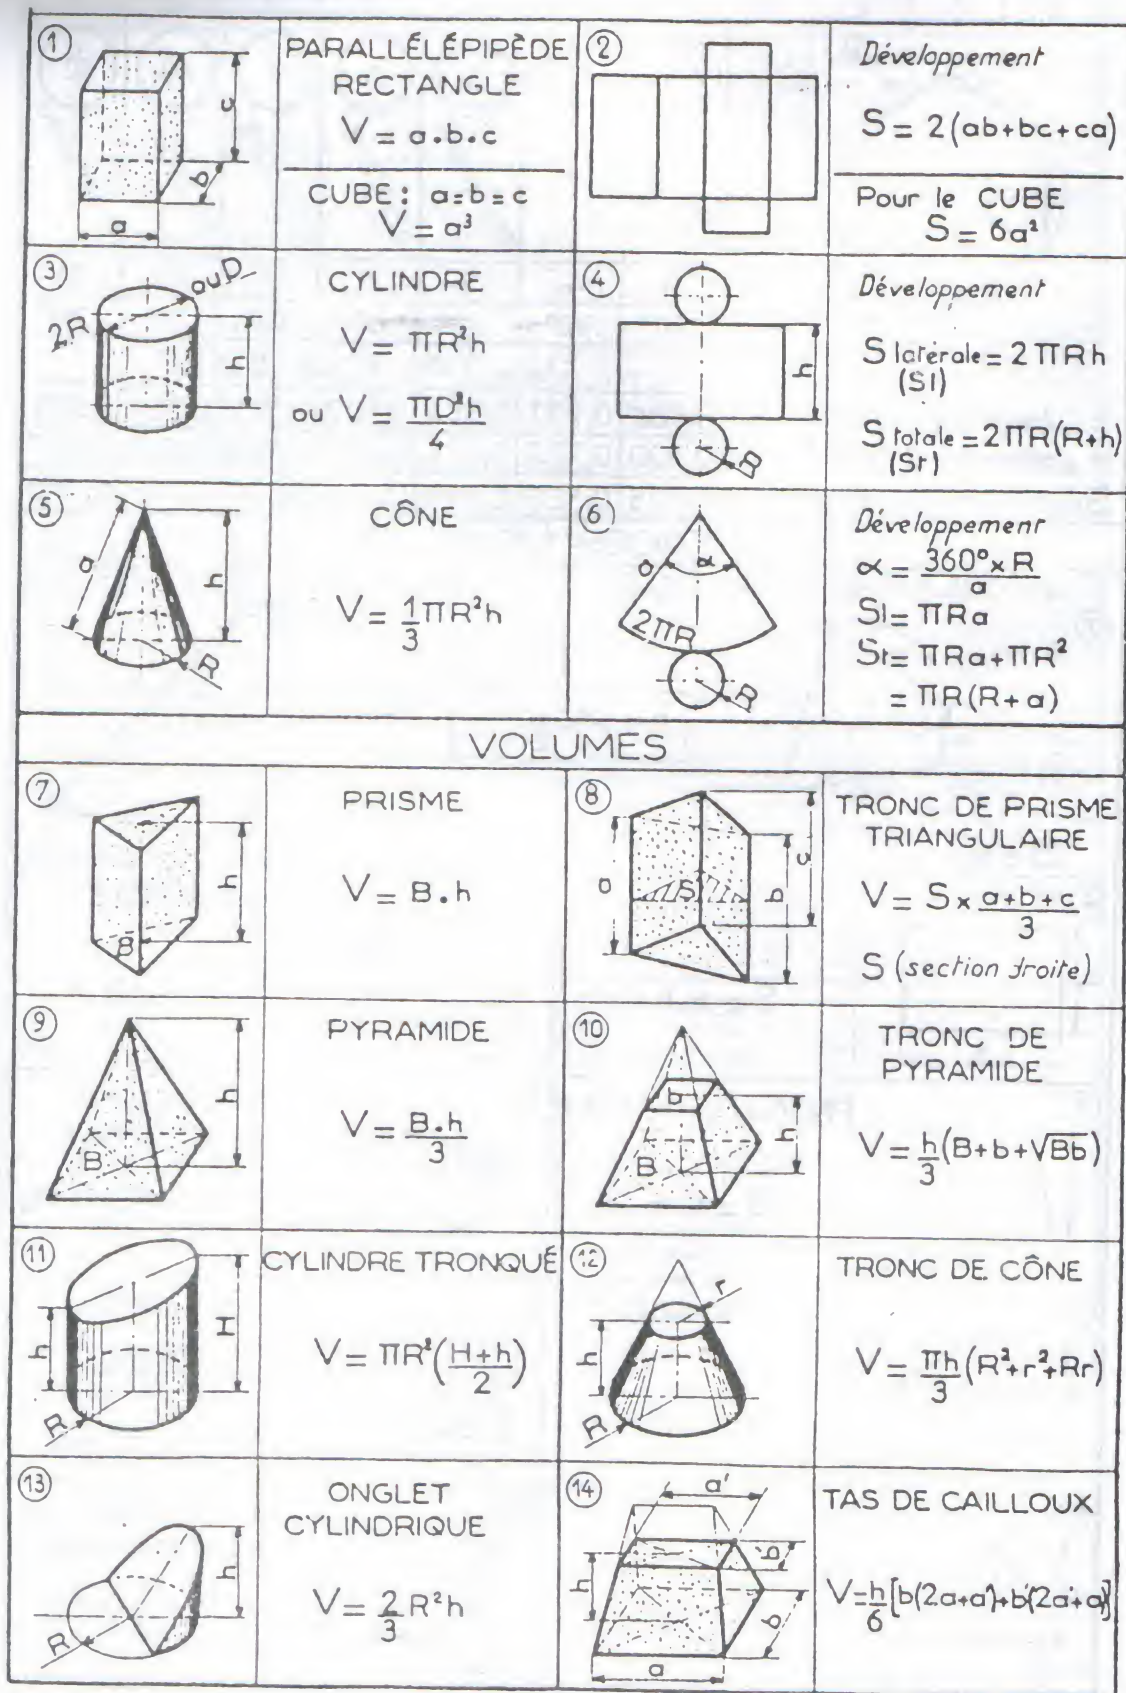 1
c
b
a
PARALLÉLÉPIPÈDE
RECTANGLE
V = a.b.c
CUBE: a=b=c
V = a³
2
Développement
S = 2(ab+bc+ca)
Pour le CUBE
S = 6a²
3
ou D
2R
h
CYLINDRE
V = πR²h
ou V = πD²h/4
4
h
R
Développement
S latérale = 2πRh
(Sl)
S totale = 2πR(R+h)
(St)
5
a
h
R
CÔNE
V = 1/3 πR²h
6
a
α
2πR
R
Développement
α = 360° x R/a
Sl = πRa
St = πRa+πR²
= πR(R+a)
VOLUMES
7
h
B
PRISME
V = B.h
8
a
S
b
c
TRONC DE PRISME
TRIANGULAIRE
V = S x a+b+c/3
S (section droite)
9
h
B
PYRAMIDE
V = B.h/3
10
b
h
B
TRONC DE
PYRAMIDE
V = h/3 (B+b+√Bb)
11
h
H
R
CYLINDRE TRONQUÉ
V = πR²(H+h/2)
12
r
h
R
TRONC DE CÔNE
V = πh/3 (R²+r²+Rr)
13
h
R
ONGLET
CYLINDRIQUE
V = 2/3 R²h
14
a'
b'
h
b
a
TAS DE CAILLOUX
V = h/6 [b(2a+a')+b'(2a'+a)]